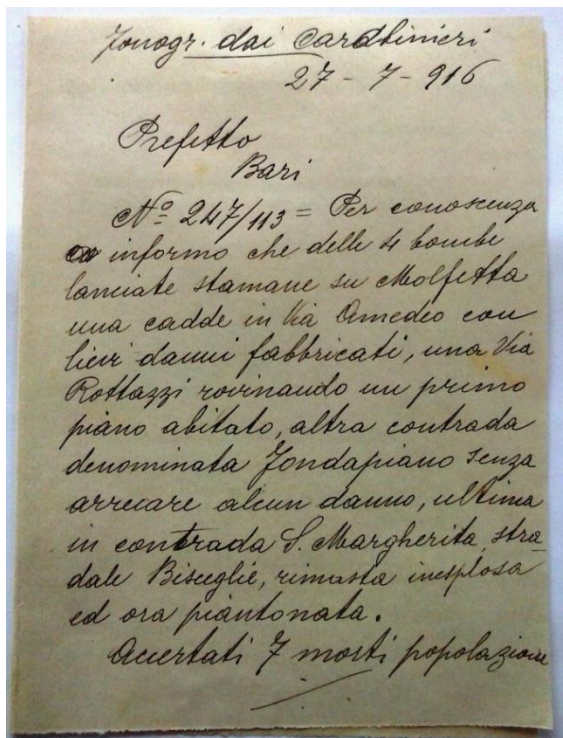 Fonogr. dai Carabinieri
27 - 7 - 916
Prefetto
Bari
Nº 247/113 = Per conoscenza
informo che delle 4 bombe
lanciate stamane su Molfetta
una cadde in Via Amedeo con
lievi danni fabbricati, una Via
Rattazzi rovinando un primo
piano abitato, altra contrada
denominata Fondapiano senza
arrecare alcun danno, ultima
in contrada S. Margherita, stra-
dale Bisceglie, rimasta inesplosa
ed ora piantonata.
Accertati 7 morti popolazione